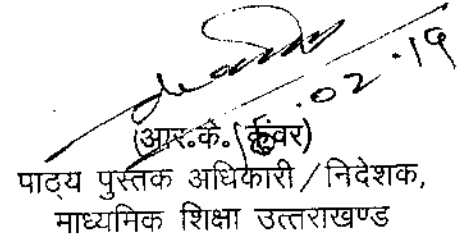 .02.19
(आर.के. कुंवर)
पाठ्य पुस्तक अधिकारी / निदेशक,
माध्यमिक शिक्षा उत्तराखण्ड